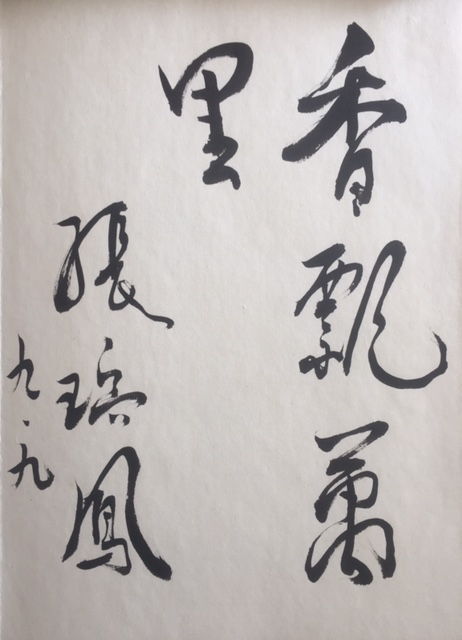 香飄萬
里
張瑞鳳
九·九